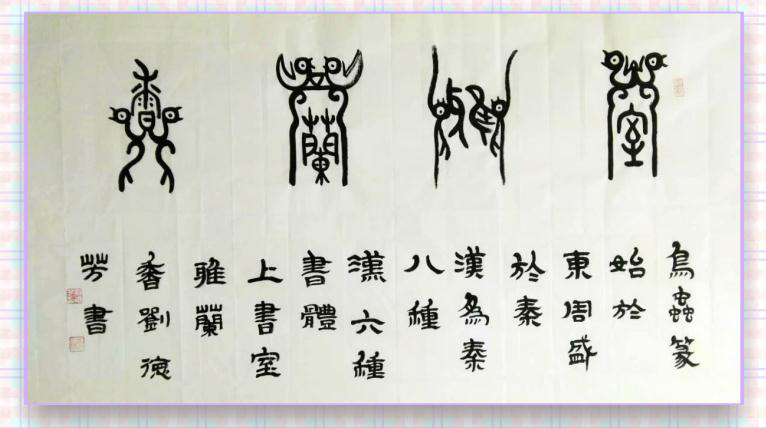 室雅蘭香
鳥蟲篆
始於
東周盛
於秦
漢為秦
八種
漢六種
書體
上書室
雅蘭
香劉德
芳書